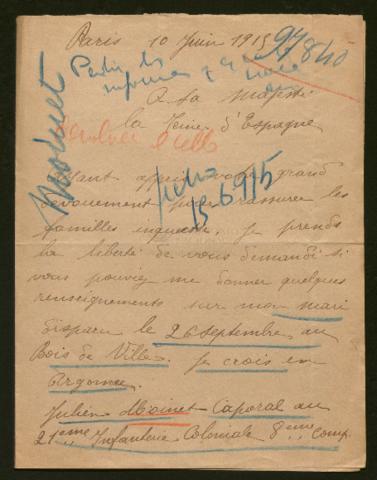 Paris 10 Juin 1915
94840
Pedir los
informes
A Sa Majesté
la Reine d'Espagne
Moinet
ficha
15 6 915
Ayant appris votre grand
dévouement pour rassurer les
familles inquiètes, je prends
la liberté de vous demander si
vous pouvez me donner quelques
renseignements sur mon mari
disparu le 26 septembre au
Bois de Ville. Je crois en
Argonne.
Julien Moinet Caporal au
21ème Infanterie Coloniale 8ème Comp.